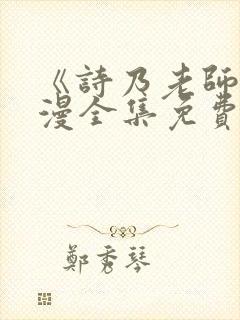 《詩乃老師
漫全集免費
鄭秀琴